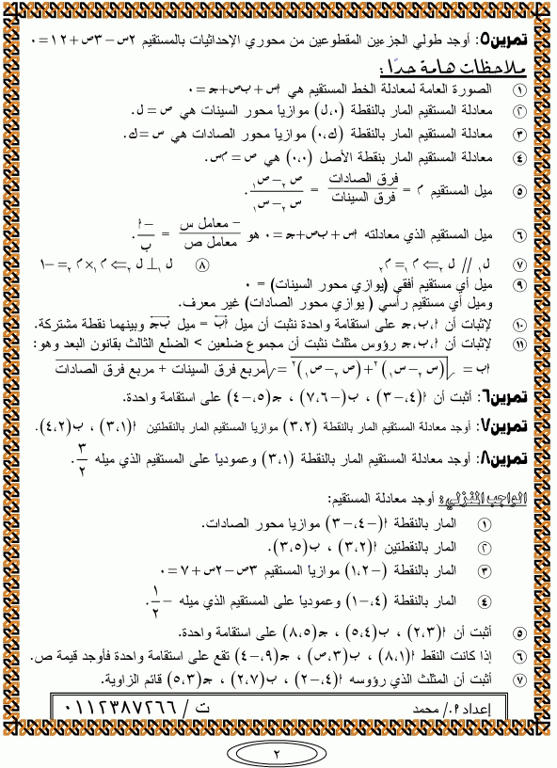 تمرين٥: أوجد طولي الجزءين المقطوعين من محوري الإحداثيات بالمستقيم ٢س − ٣ص + ١٢ = ٠
ملاحظات هامة جدًا:
١ الصورة العامة لمعادلة الخط المستقيم هي أس + ب ص + جـ = ٠
٢ معادلة المستقيم المار بالنقطة (٠،ل) موازيا محور السينات هي ص = ل.
٣ معادلة المستقيم المار بالنقطة (ك،٠) موازيا محور الصادات هي س = ك.
٤ معادلة المستقيم المار بنقطة الأصل (٠،٠) هي ص = م س.
٥ ميل المستقيم م = فرق الصادات / فرق السينات = ص٢ − ص١ / س٢ − س١.
٦ ميل المستقيم الذي معادلته أس + ب ص + جـ = ٠ هو − معامل س / معامل ص = −أ / ب.
٧ ل١ // ل٢ ⇐⇒ م١ = م٢ ٨ ل١ ⊥ ل٢ ⇐⇒ م١ × م٢ = −١
٩ ميل أي مستقيم أفقي (يوازي محور السينات) = ٠
وميل أي مستقيم رأسي ( يوازي محور الصادات) غير معرف.
١٠ لإثبات أن أ،ب،جـ على استقامة واحدة نثبت أن ميل أب = ميل ب جـ وبينهما نقطة مشتركة.
١١ لإثبات أن أ،ب،جـ رؤوس مثلث نثبت أن مجموع ضلعين > الضلع الثالث بقانون البعد وهو:
أب = √(س٢ − س١)٢ + (ص٢ − ص١)٢ = √مربع فرق السينات + مربع فرق الصادات
تمرين٦: أثبت أن أ(٤،−٣) ، ب(−٧،٦) ، جـ(٥،−٤) على استقامة واحدة.
تمرين٧: أوجد معادلة المستقيم المار بالنقطة (٣،٢) موازيا المستقيم المار بالنقطتين أ(٣،١) ، ب(٤،٢).
تمرين٨: أوجد معادلة المستقيم المار بالنقطة (٣،١) وعموديا على المستقيم الذي ميله ٣/٢.
الواجب المنزلي: أوجد معادلة المستقيم:
١ المار بالنقطة أ(−٤،−٣) موازيا محور الصادات.
٢ المار بالنقطتين أ(٣،٢) ، ب(٣،٥).
٣ المار بالنقطة (−١،٢) موازيا المستقيم ٣ص − ٢س + ٧ = ٠
٤ المار بالنقطة (٤،−١) وعموديا على المستقيم الذي ميله −١/٢.
٥ أثبت أن أ(٢،٣) ، ب(٥،٤) ، جـ(٨،٥) على استقامة واحدة.
٦ إذا كانت النقط أ(٨،١) ، ب(٣،ص) ، جـ(٩،−٤) تقع على استقامة واحدة فأوجد قيمة ص.
٧ أثبت أن المثلث الذي رؤوسه أ(٤،−٢) ، ب(٢،٧) ، جـ(٥،٣) قائم الزاوية.
إعداد أ/ محمد ت / ٠١١٢٣٨٧٢٦٦
٢